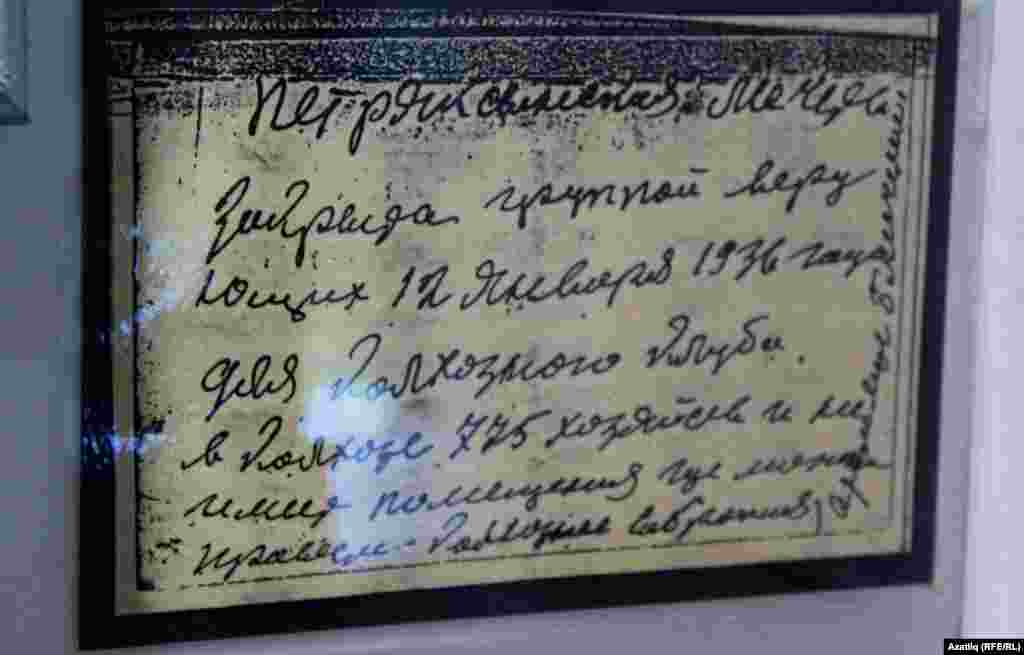 Петряксинская мечеть
Забрата группой верую
ющих 12 января 1936 года
для колхозного клуба.
в колхозе 775 хозяйств и не
имел помещения где
колхозные собрания
Azatliq (RFE/RL)